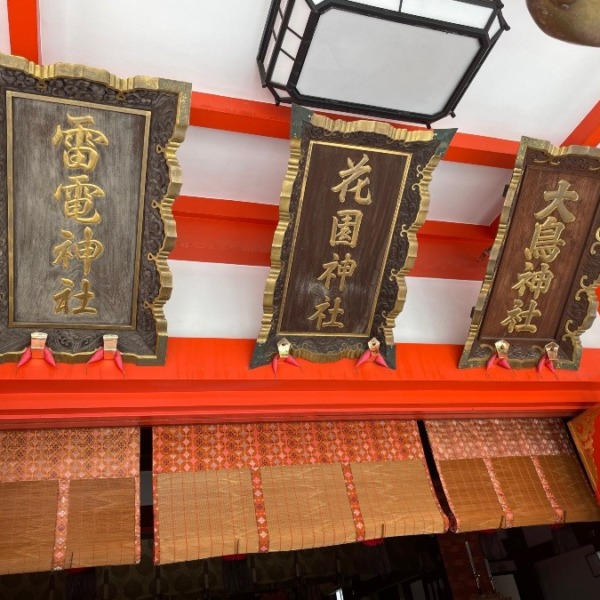 雷電神社
花園神社
大鳥神社